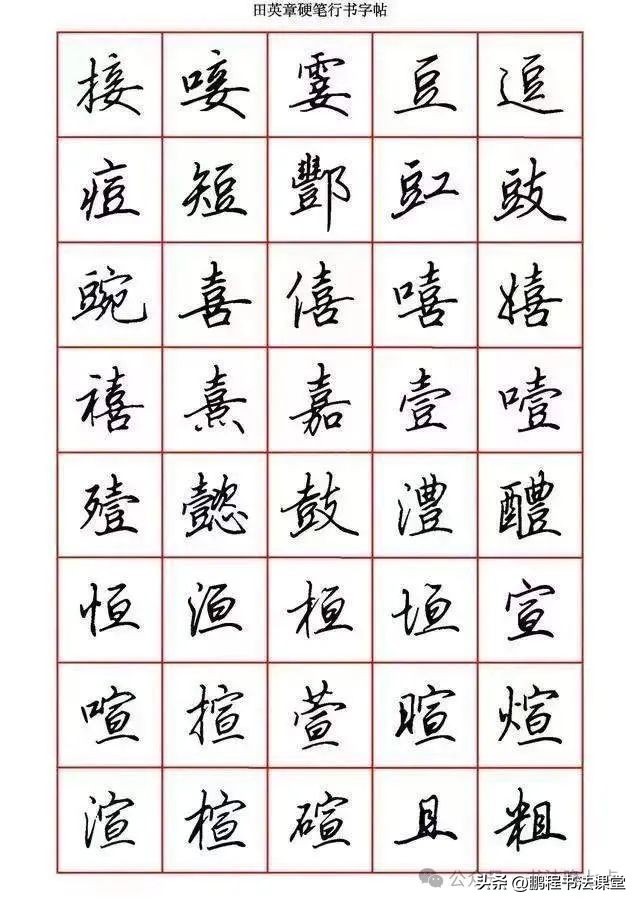 田英章硬笔行书字帖
接 唼 霎 豆 逗
痘 短 酆 豇 豉
豌 喜 僖 嘻 嬉
禧 熹 嘉 壹 噎
殪 懿 鼓 澧 醴
恒 洹 桓 垣 宣
喧 揎 萱 暄 煊
渲 楦 碹 且 粗
头条 @鹏程书法课堂